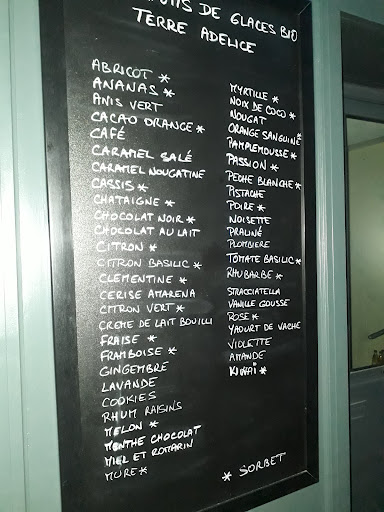 DE GLACES BIO
TERRE ADELICE
ABRICOT *
ANANAS *
ANIS VERT
CACAO ORANGE *
CAFÉ
CARAMEL SALÉ
CARAMEL NOUGATINE
CASSIS *
CHATAIGNE *
CHOCOLAT NOIR *
CHOCOLAT AU LAIT
CITRON *
CITRON BASILIC *
CLEMENTINE *
CERISE AMARENA
CITRON VERT *
CREME DE LAIT BOUILLI
FRAISE *
FRAMBOISE *
GINGEMBRE
LAVANDE
COOKIES
RHUM RAISINS
MELON *
MENTHE CHOCOLAT
MIEL ET ROMARIN
MURE *
MYRTILLE *
NOIX DE COCO *
NOUGAT
ORANGE SANGUINE *
PAMPLEMOUSSE *
PASSION *
PECHE BLANCHE *
PISTACHE
POIRE *
NOISETTE
PRALINÉ
PLOMBIERE
TOMATE BASILIC *
RHUBARBE *
STRACCIATELLA
VANILLE GOUSSE
ROSE *
YAOURT DE VACHE
VIOLETTE
AMANDE
KIWAÏ *
* SORBET